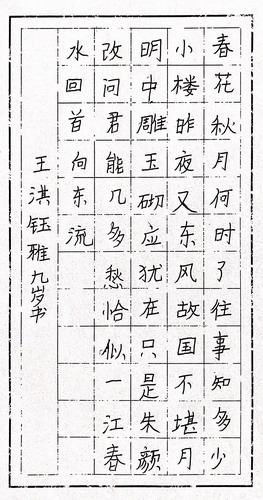 春花秋月何时了往事知多少
小楼昨夜又东风故国不堪月
明中雕玉砌应犹在只是朱颜
改问君能几多愁恰似一江春
水回首向东流
王洪钰雅九岁书